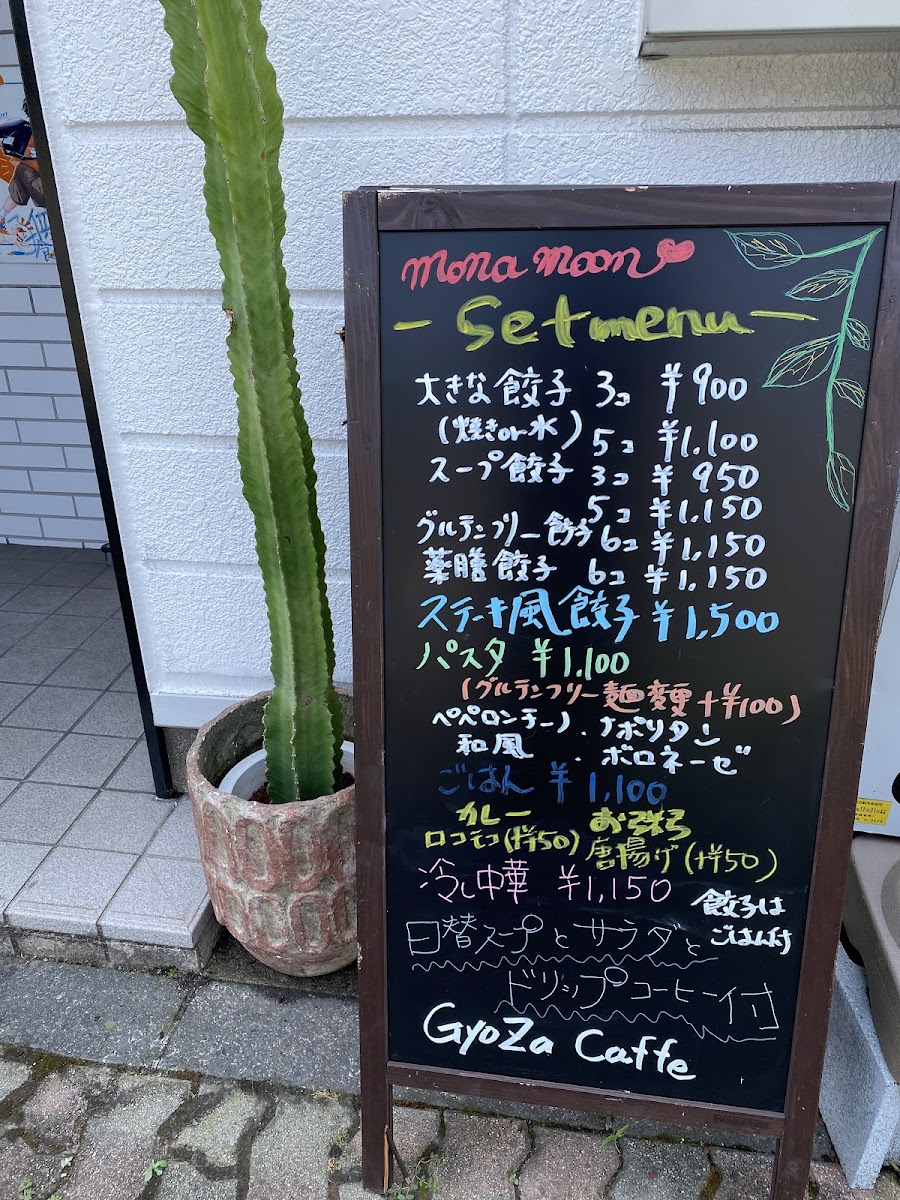 mona moon
- Set menu -
大きな餃子 3コ ¥900
(焼きor水) 5コ ¥1.100
スープ餃子 3コ ¥950
5コ ¥1.150
グルテンフリー餃子 6コ ¥1,150
薬膳餃子 6コ ¥1,150
ステーキ風餃子 ¥1,500
パスタ ¥1,100
(グルテンフリー麺変更+¥100)
ペペロンチーノ・ナポリタン
和風・ボロネーゼ
ごはん ¥1,100
カレー おかゆ
ロコモコ(+¥50) 唐揚げ(+¥50)
冷し中華 ¥1,150
餃子は
ごはん付
日替スープとサラダと
ドリップコーヒー付
GyoZa Caffe